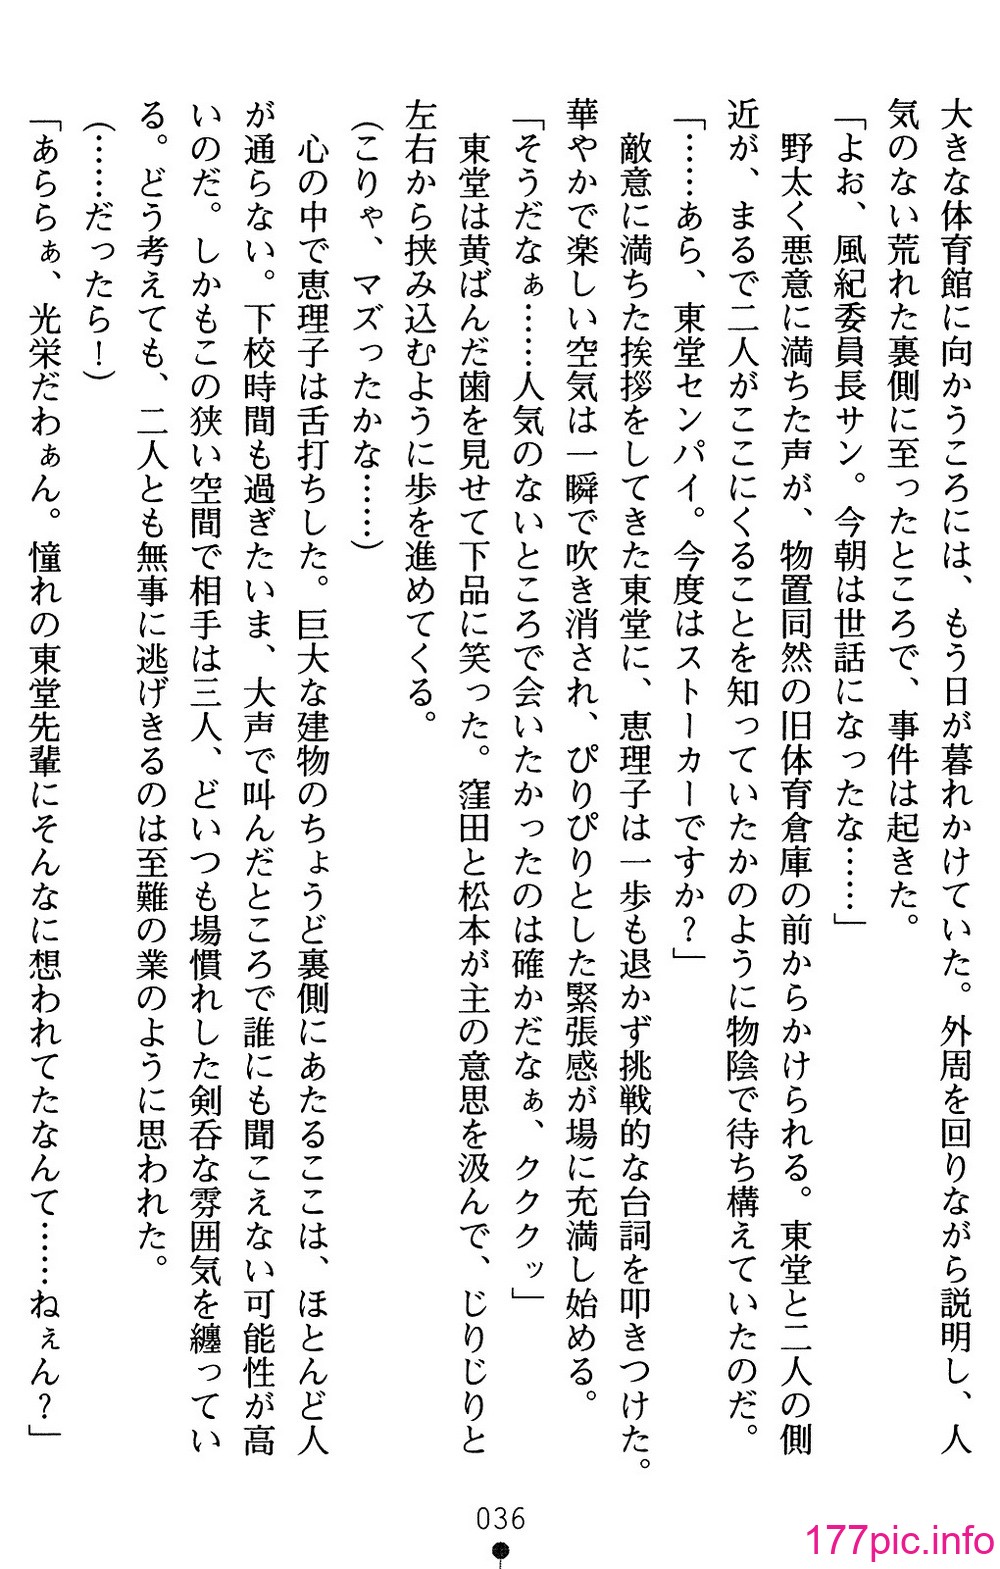 大きな体育館に向かうころには、もう日が暮れかけていた。外周を回りながら説明し、人
気のない荒れた裏側に至ったところで、事件は起きた。
「よお、風紀委員長サン。今朝は世話になったな……」
野太く悪意に満ちた声が、物置同然の旧体育倉庫の前からかけられる。東堂と二人の側
近が、まるで二人がここにくることを知っていたかのように物陰で待ち構えていたのだ。
「……あら、東堂センパイ。今度はストーカーですか？」
敵意に満ちた挨拶をしてきた東堂に、恵理子は一歩も退かず挑戦的な台詞を叩きつけた。
華やかで楽しい空気は一瞬で吹き消され、ぴりぴりとした緊張感が場に充満し始める。
「そうだなぁ……人気のないところで会いたかったのは確かだなぁ、ククククッ」
東堂は黄ばんだ歯を見せて下品に笑った。窪田と松本が主の意思を汲んで、じりじりと
左右から挟み込むように歩を進めてくる。
（こりゃ、マズったかな……）
心の中で恵理子は舌打ちした。巨大な建物のちょうど裏側にあたるここは、ほとんど人
が通らない。下校時間も過ぎたいま、大声で叫んだところで誰にも聞こえない可能性が高
いのだ。しかもこの狭い空間で相手は三人、どいつも場慣れした剣呑な雰囲気を纏ってい
る。どう考えても、二人とも無事に逃げきるのは至難の業のように思われた。
（……だったら！）
「あららぁ、光栄だわぁん。憧れの東堂先輩にそんなに想われてたなんて……ねぇん？」
036
177pic.info